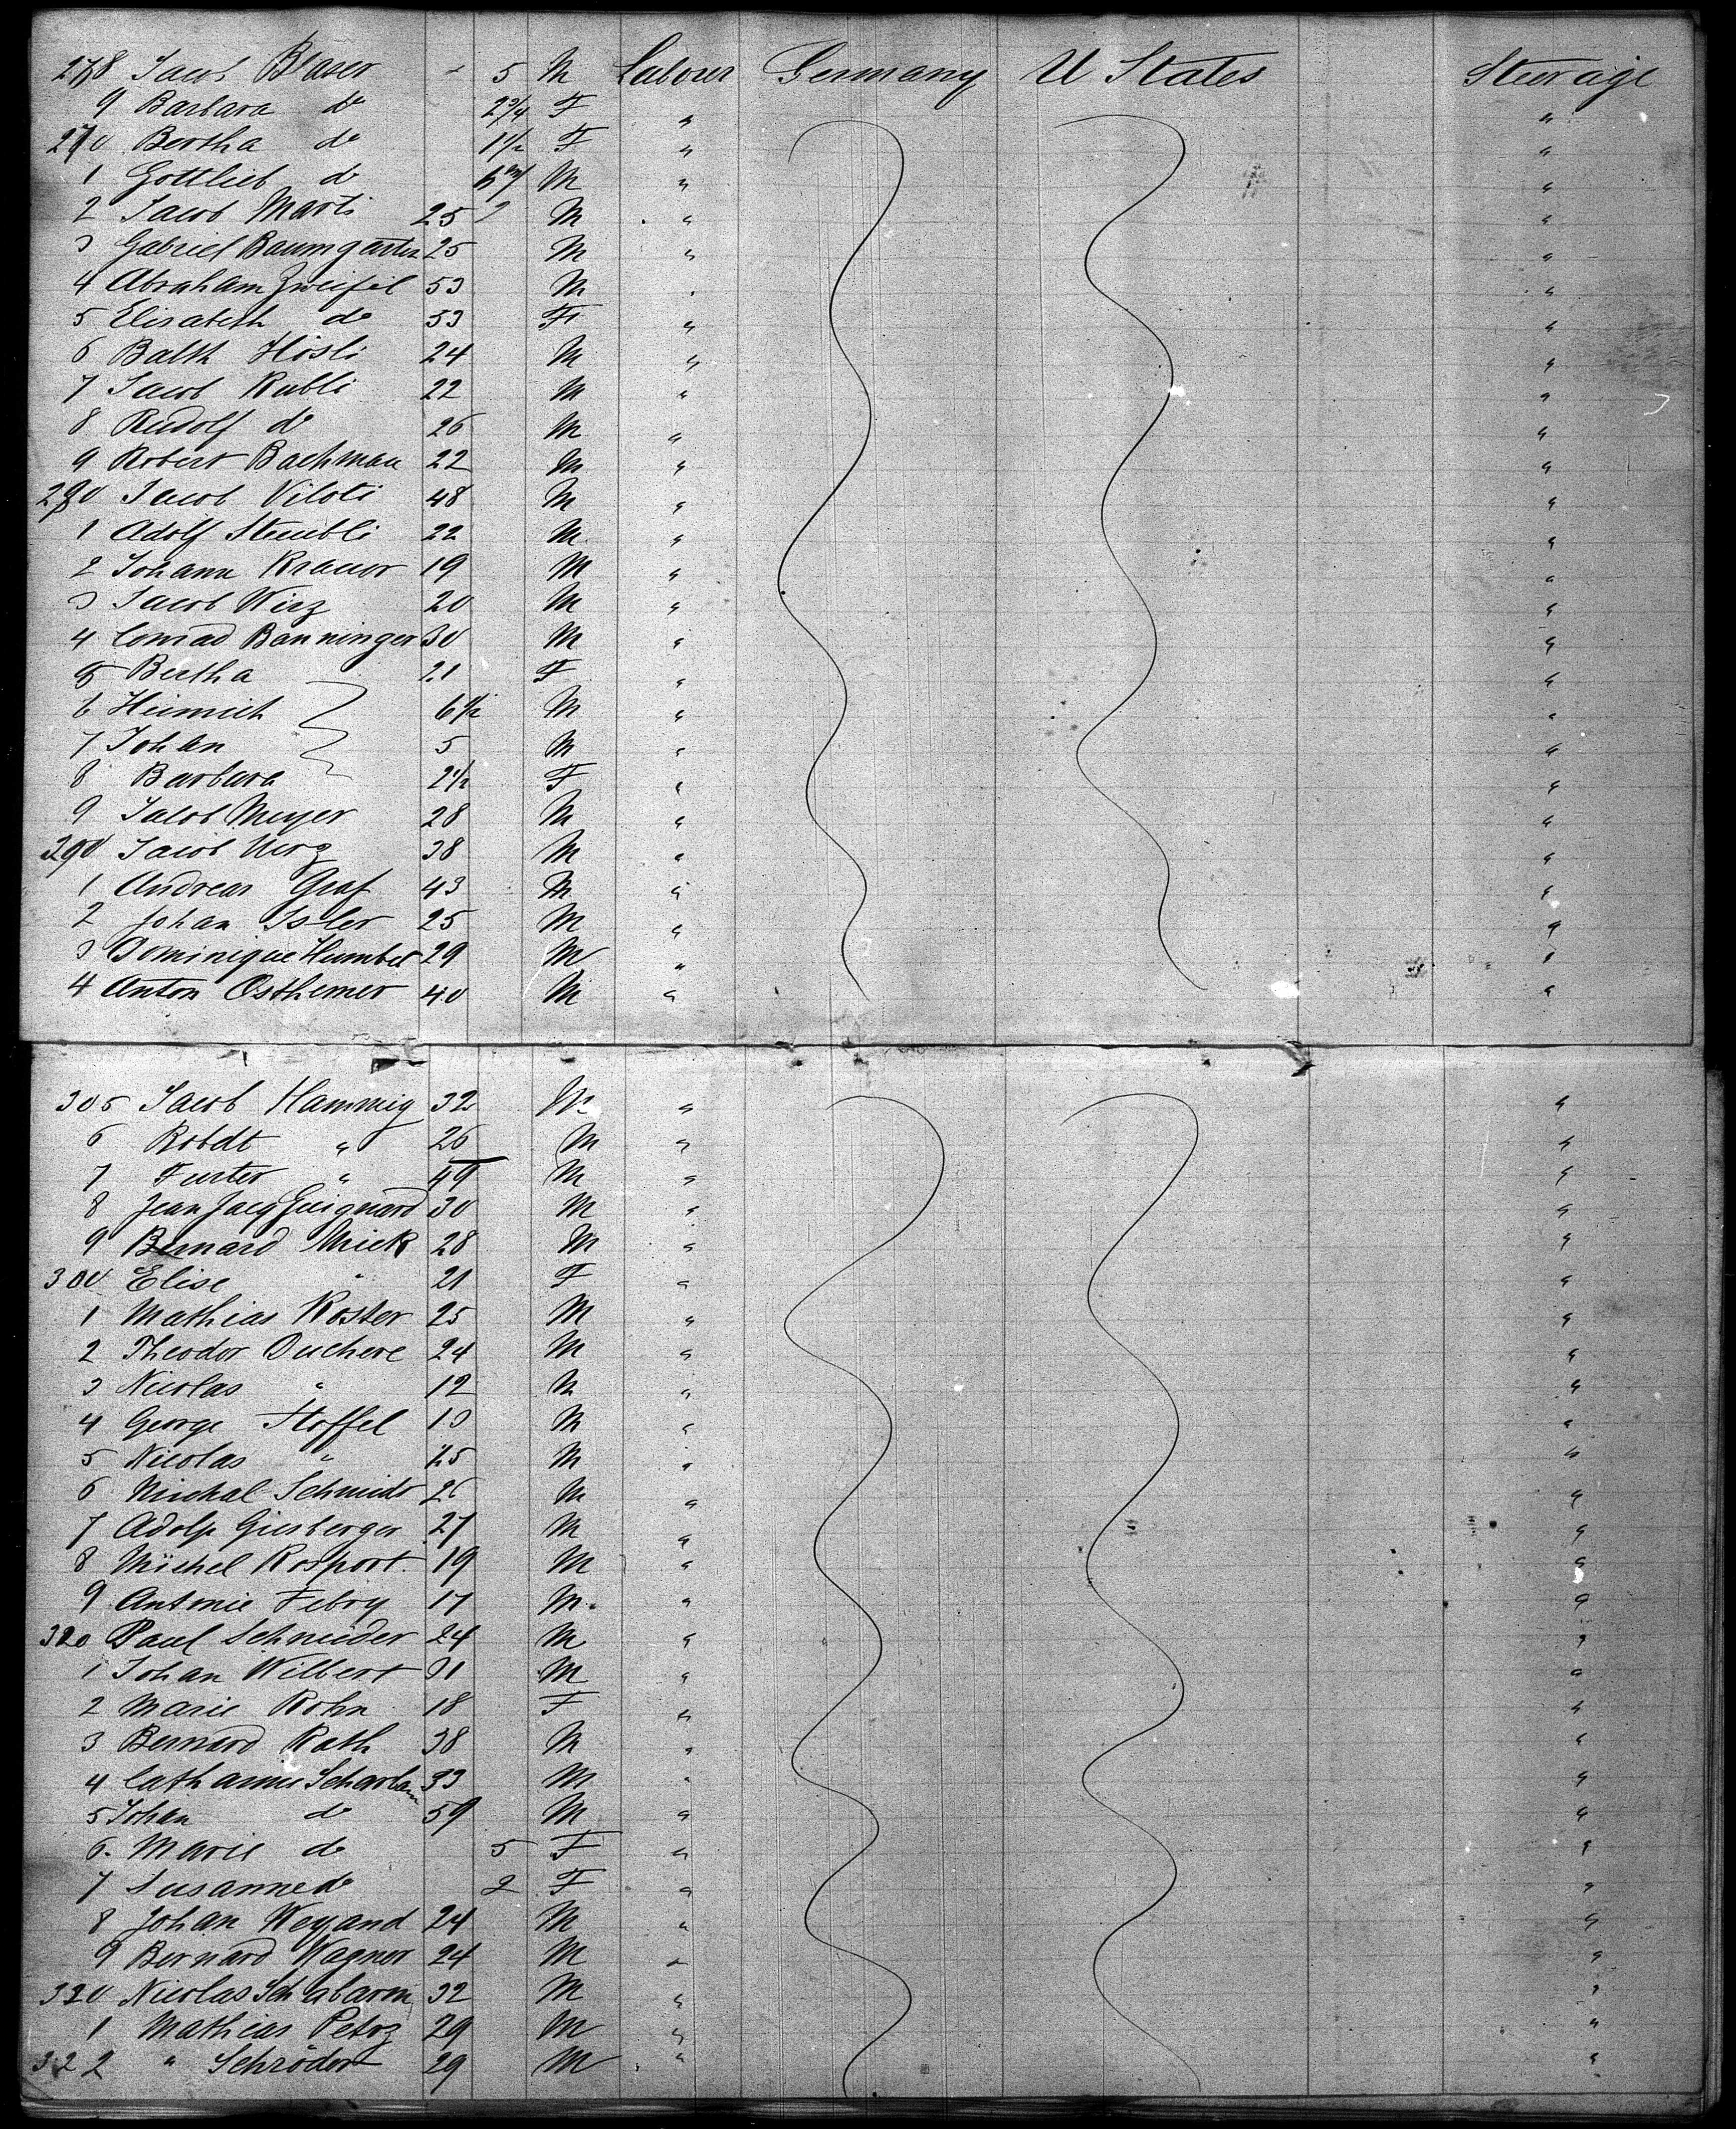 278 Jacob Blaser 5 M Labourer Germany U States Steerage
9 Barbara do 2 3/4 F " "
270 Bertha do 1 1/2 F " "
1 Gottlieb do M " "
2 Jacob Marti 25 M " "
3 Gabriel Baumgarten 25 M " "
4 Abraham Zweifel 53 M " "
5 Elisabeth do 53 F " "
6 Balth Hösli 24 M " "
7 Jacob Kubli 22 M " "
8 Rudolf do 26 M " "
9 Robert Bachman 22 M " "
280 Jacob Viloti 48 M " "
1 Adolf Steubli 22 M " "
2 Johann Krauer 19 M " "
3 Jacob Wirz 20 M " "
4 Conrad Banninger 30 M " "
5 Bertha 21 F " "
6 Heinrich 6 1/2 M " "
7 Johan 5 M " "
8 Barbara 2 1/2 F " "
9 Jacob Meyer 28 M " "
290 Jacob 38 M " "
1 Andreas Graf 43 M " "
2 Johan Isler 25 M " "
3 Dominique Humbel 29 M " "
4 Anton Osthemer 40 M " "
305 Jacob Hammig 32 M " "
6 Robdt " 26 M " "
7 Furter " 49 M " "
8 Jean Jacq Guignard 30 M " "
9 Bernard 28 M " "
300 Elise " 21 F " "
1 Mathias Koster 25 M " "
2 Theodor Duchere 24 M " "
3 Nicolas " 12 M " "
4 George Stoffel 10 M " "
5 Nicolas " 25 M " "
6 Michal Schmidt 26 M " "
7 Adolp Giesberger 27 M " "
8 Michel Rosport 19 M " "
9 Antonie Febry 17 M " "
320 Paul Schneider 24 M " "
1 Johan Wilbert 31 M " "
2 Marie Rohn 18 F " "
3 Bernard Rath 38 M " "
4 Catharine 33 M " "
5 Johan do 59 M " "
6 Marie do 5 F " "
7 Susanne do 2 F " "
8 Johan Weyand 24 M " "
9 Bernard Wagner 24 M " "
320 Nicolas 32 M " "
1 Mathias Petry 29 M " "
322 " Schröder 29 M " "